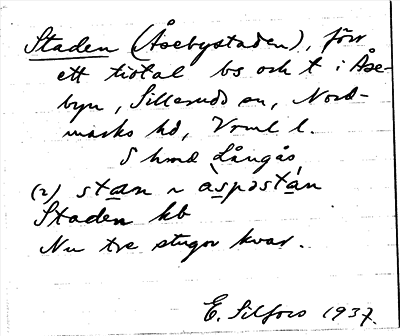 Staden (Åsebystaden), förr
ett tiotal bs och t i Åse-
byn, Sillerudd sn, Nord-
marks hd, Vrml l.
S hmd Långås
(2) stan ~ àspəstán
Staden kb
Nu tre stugor kvar.
E. Silfors 1937